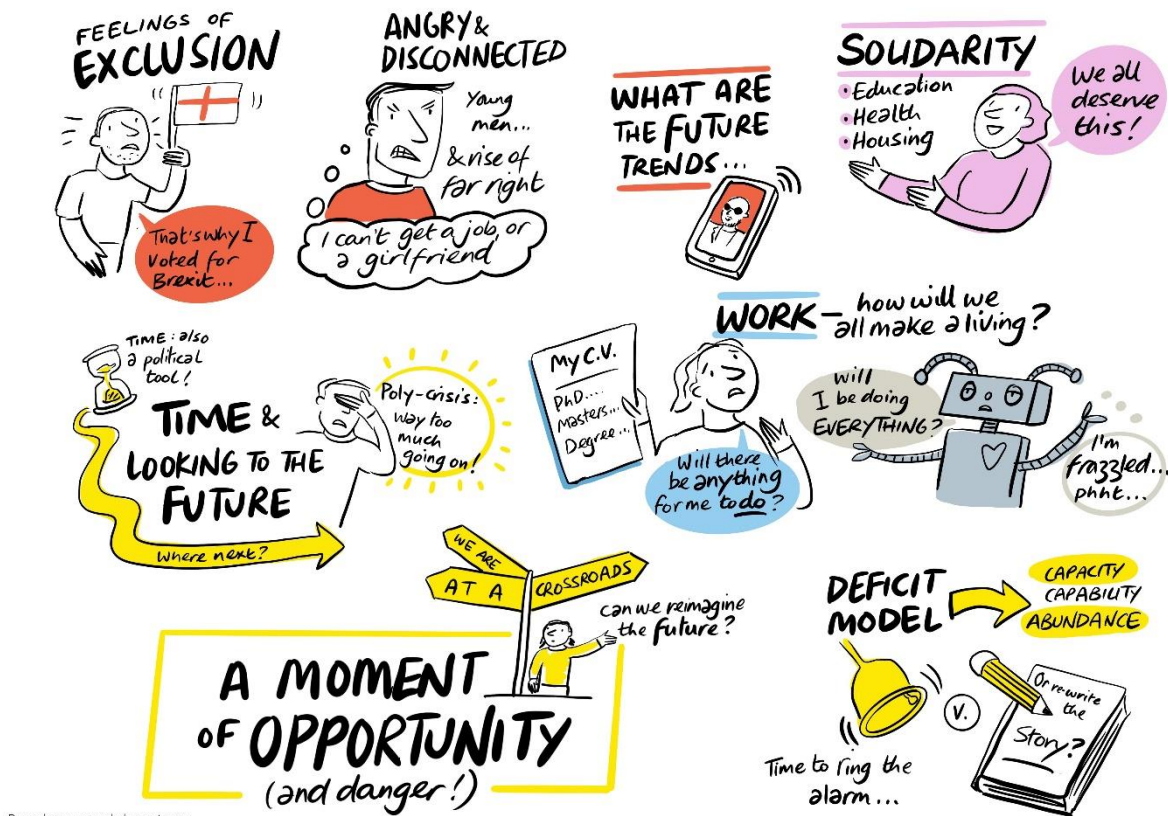 FEELINGS OF
EXCLUSION
That's why I
voted for
Brexit...
ANGRY &
DISCONNECTED
Young
men...
& rise of
far right
I can't get a job, or
a girlfriend
WHAT ARE
THE FUTURE
TRENDS...
SOLIDARITY
• Education
• Health
• Housing
We all
deserve
this!
TIME: also
a political
tool!
TIME &
LOOKING TO THE
FUTURE
Where next?
Poly-crisis:
way too
much
going on!
WORK – how will we
all make a living?
My C.V.
PhD....
Masters...
Degree...
Will there
be anything
for me to do?
Will
I be doing
EVERYTHING?
I'm
frazzled...
phht...
WE ARE
AT A CROSSROADS
can we reimagine
the future?
A MOMENT
OF OPPORTUNITY
(and danger!)
DEFICIT
MODEL
CAPACITY
CAPABILITY
ABUNDANCE
Time to ring the
alarm...
V.
Or re-write
the
Story?